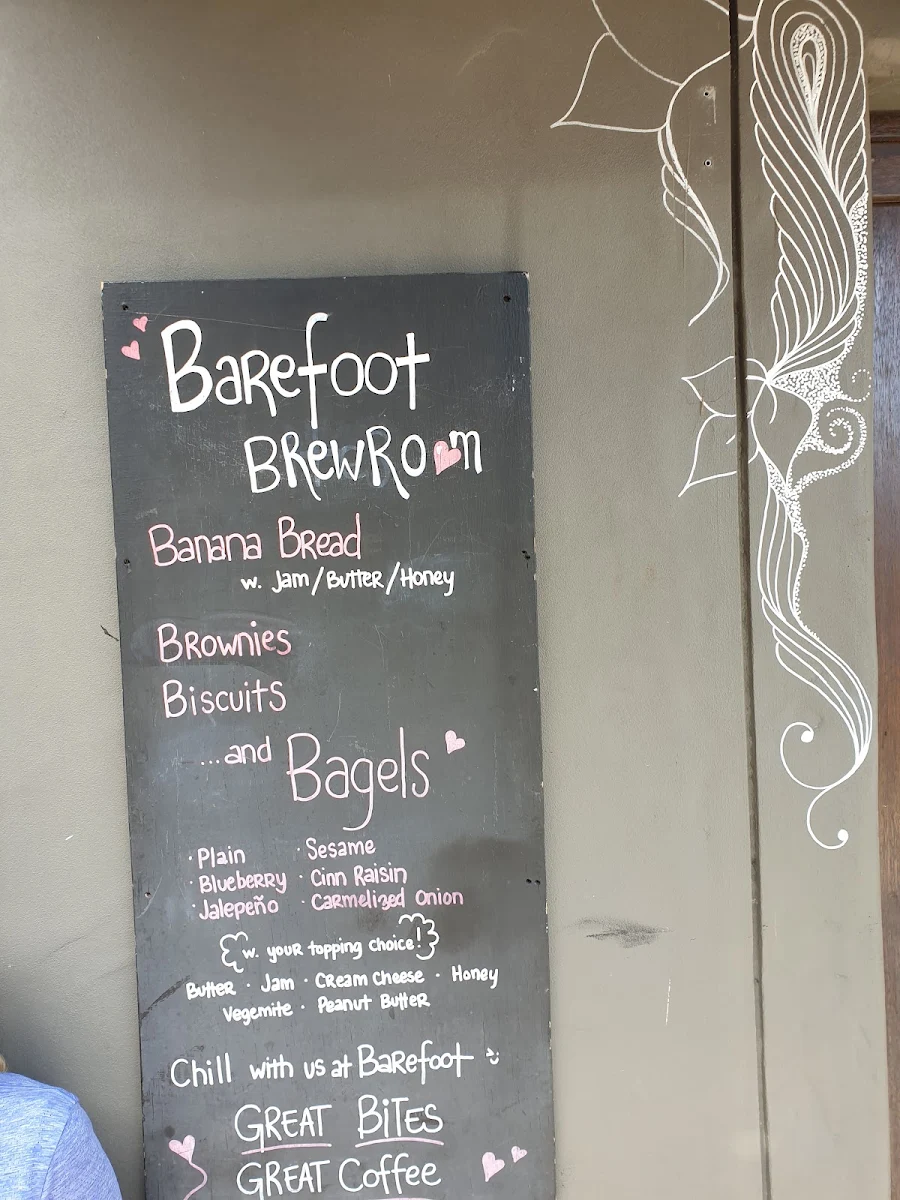 Barefoot
BRewRoom
Banana Bread
w. Jam/Butter/Honey
Brownies
Biscuits
...and Bagels
· Plain · Sesame
· Blueberry · Cinn Raisin
· Jalepeño · Carmelized Onion
w. your topping choice!
Butter · Jam · Cream Cheese · Honey
Vegemite · Peanut Butter
Chill with us at Barefoot
GREAT BiTES
GREAT Coffee